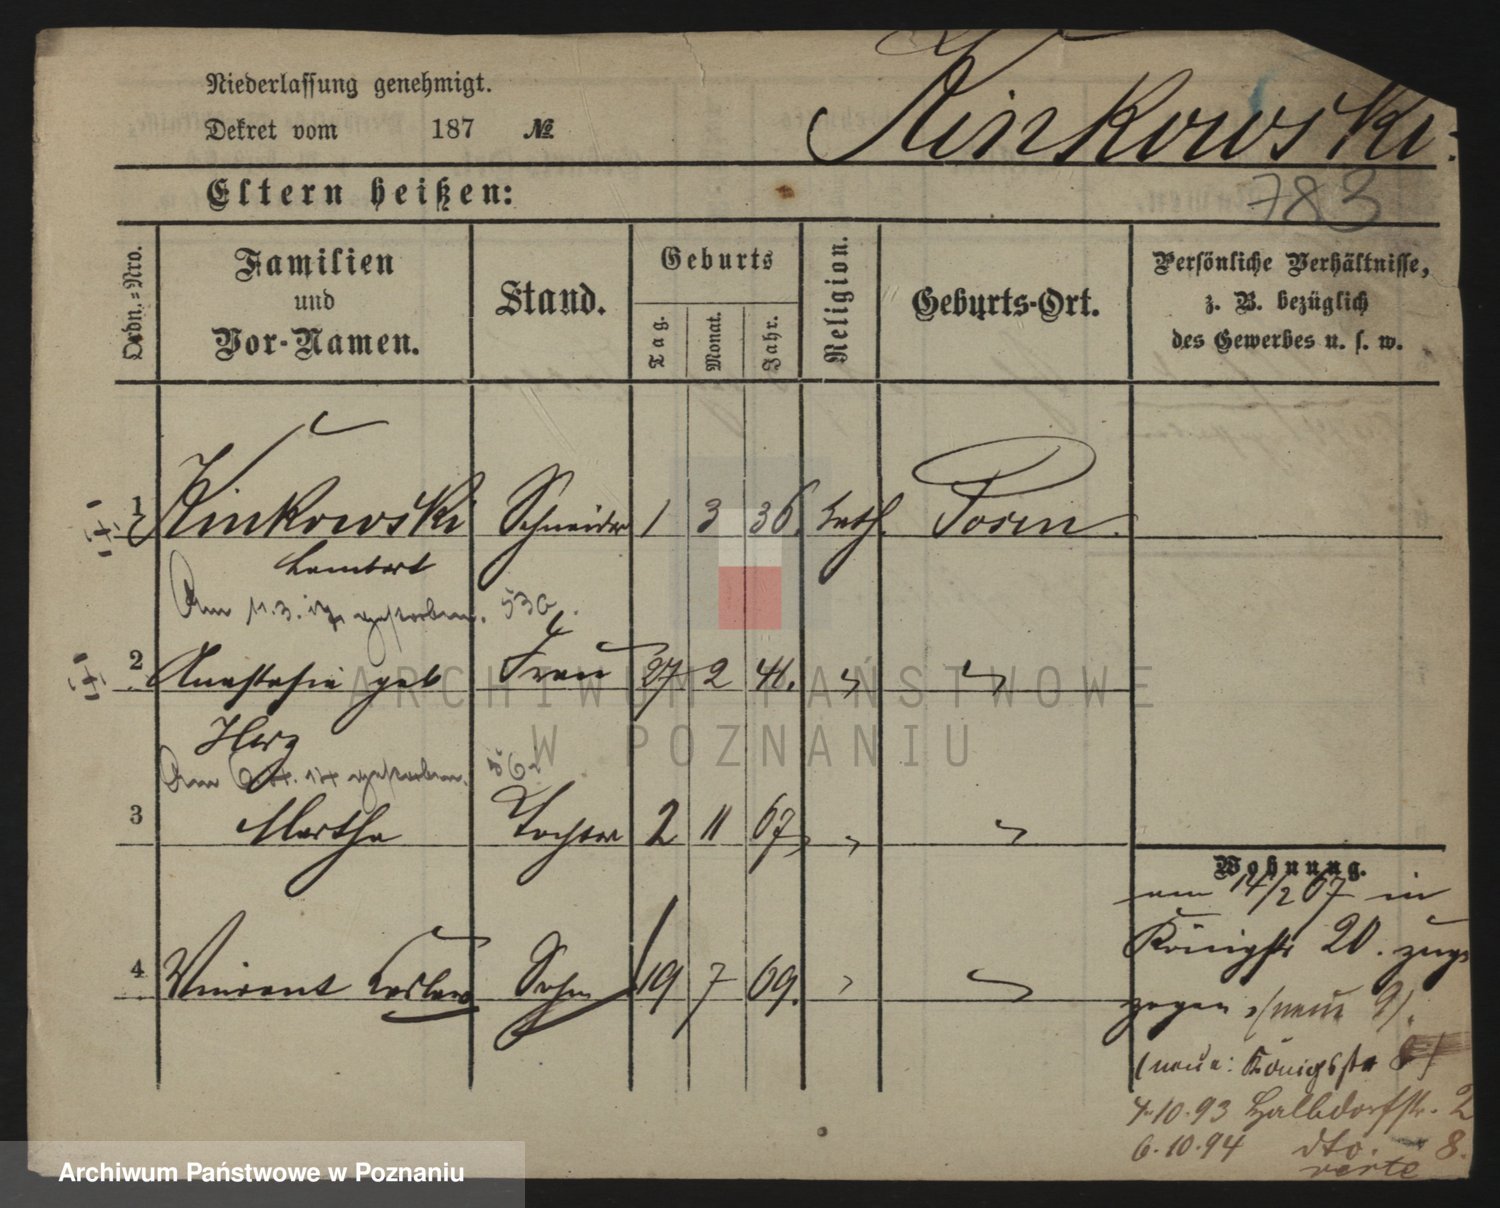 Niederlassung genehmigt.
Dekret vom 187 №
Kinkowski.
783
Eltern heißen:
Ordn.=Nro.
Familien
und
Vor-Namen.
Stand.
Geburts
Tag.
Monat.
Jahr.
Religion.
Geburts-Ort.
Persönliche Verhältnisse,
z. B. bezüglich
des Gewerbes u. s. w.
1 Kinkowski Schneider 1 3 36. kath. Posen.
Lambert
Am 11.3. gestorben.
2 Anastasie geb Frau 27 2 41. " "
Herz
Am gestorben.
3 Martha Tochter 2 11 67 " "
4 Vincent Sohn 19 7 69. " "
Wohnung.
am 14/2 67 in
Königstr 20. zuge
zogen /neue 9/.
(neue: Königsstr 8)
4.10.93 Halbdorfstr. 2
6.10.94 dto. 8.
verte
ARCHIWUM PAŃSTWOWE
W POZNANIU
Archiwum Państwowe w Poznaniu